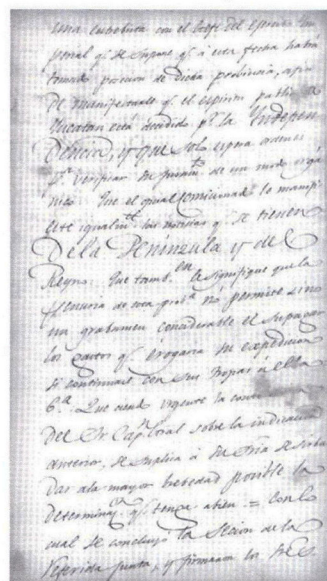 una entrevista con el Gefe del Egercito Im
perial qe. se supone qe. á esta fecha habrá
tomado posecion de dicha probincia, afin
de manifestarle qe. el espiritu public
Yucatan está decidido pr. la Indepen
dencia, y que solo espera ordenes
pa. verificar su juramto. de un modo orgá
nico: Que el qual comicionado le manifi
este igualmte. las noticias qe. se tienen
De la Peninzula y de
Reyno. Que tambien le signifique que la
penuria de esta proba. no permite sino
un grabamen considerable el
los gastos qe. erogaria su expedicion
si continuase con sus tropas á ella
6.a Que siendo urgente la
del Sr. Capn. Gral sobre la indicacion
anterior, se suplica á Su Sria se sirba
dar ala mayor brebedad posible la
determinacn. qe. tenga abien = con lo
cual se concluyó la secion de la
referida junta, y firmaron los SS.